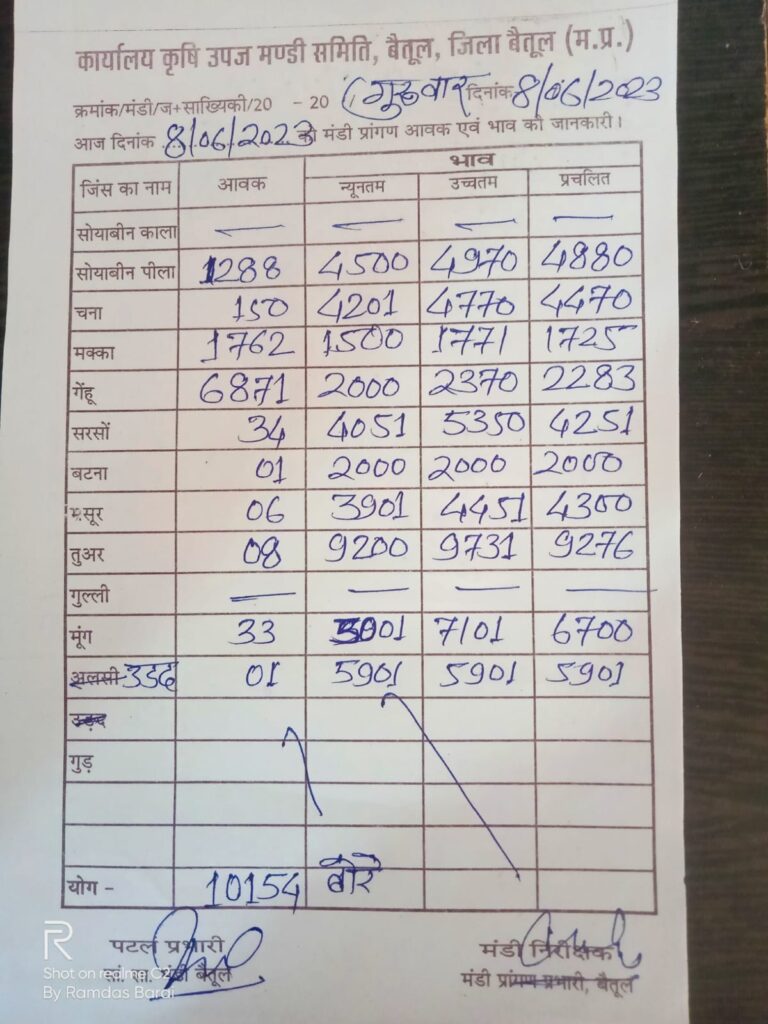 कार्यालय कृषि उपज मण्डी समिति, बैतूल, जिला बैतूल (म.प्र.)
क्रमांक/मंडी/ज+साख्यिकी/20 - 20 (गुरुवार दिनांक 8/06/2023
आज दिनांक 8/06/2023 को मंडी प्रांगण आवक एवं भाव की जानकारी।
जिंस का नाम आवक भाव
न्यूनतम उच्चतम प्रचलित
सोयाबीन काला — — — —
सोयाबीन पीला 1288 4500 4970 4880
चना 150 4201 4770 4470
मक्का 1762 1500 1771 1725
गेंहू 6871 2000 2370 2283
सरसों 34 4051 5350 4251
बटना 01 2000 2000 2000
मसूर 06 3901 4451 4300
तुअर 08 9200 9731 9276
गुल्ली — — — —
मूंग 33 01 7101 6700
अलसी उडद 01 5901 5901 5901
उड़द
गुड़
योग - 10154 बोरे
पटल प्रभारी मंडी निरीक्षक
सां. सा. मंडी बैतूल मंडी प्रांगण प्रभारी, बैतूल
R
Shot on realme C2
By Ramdas Barai